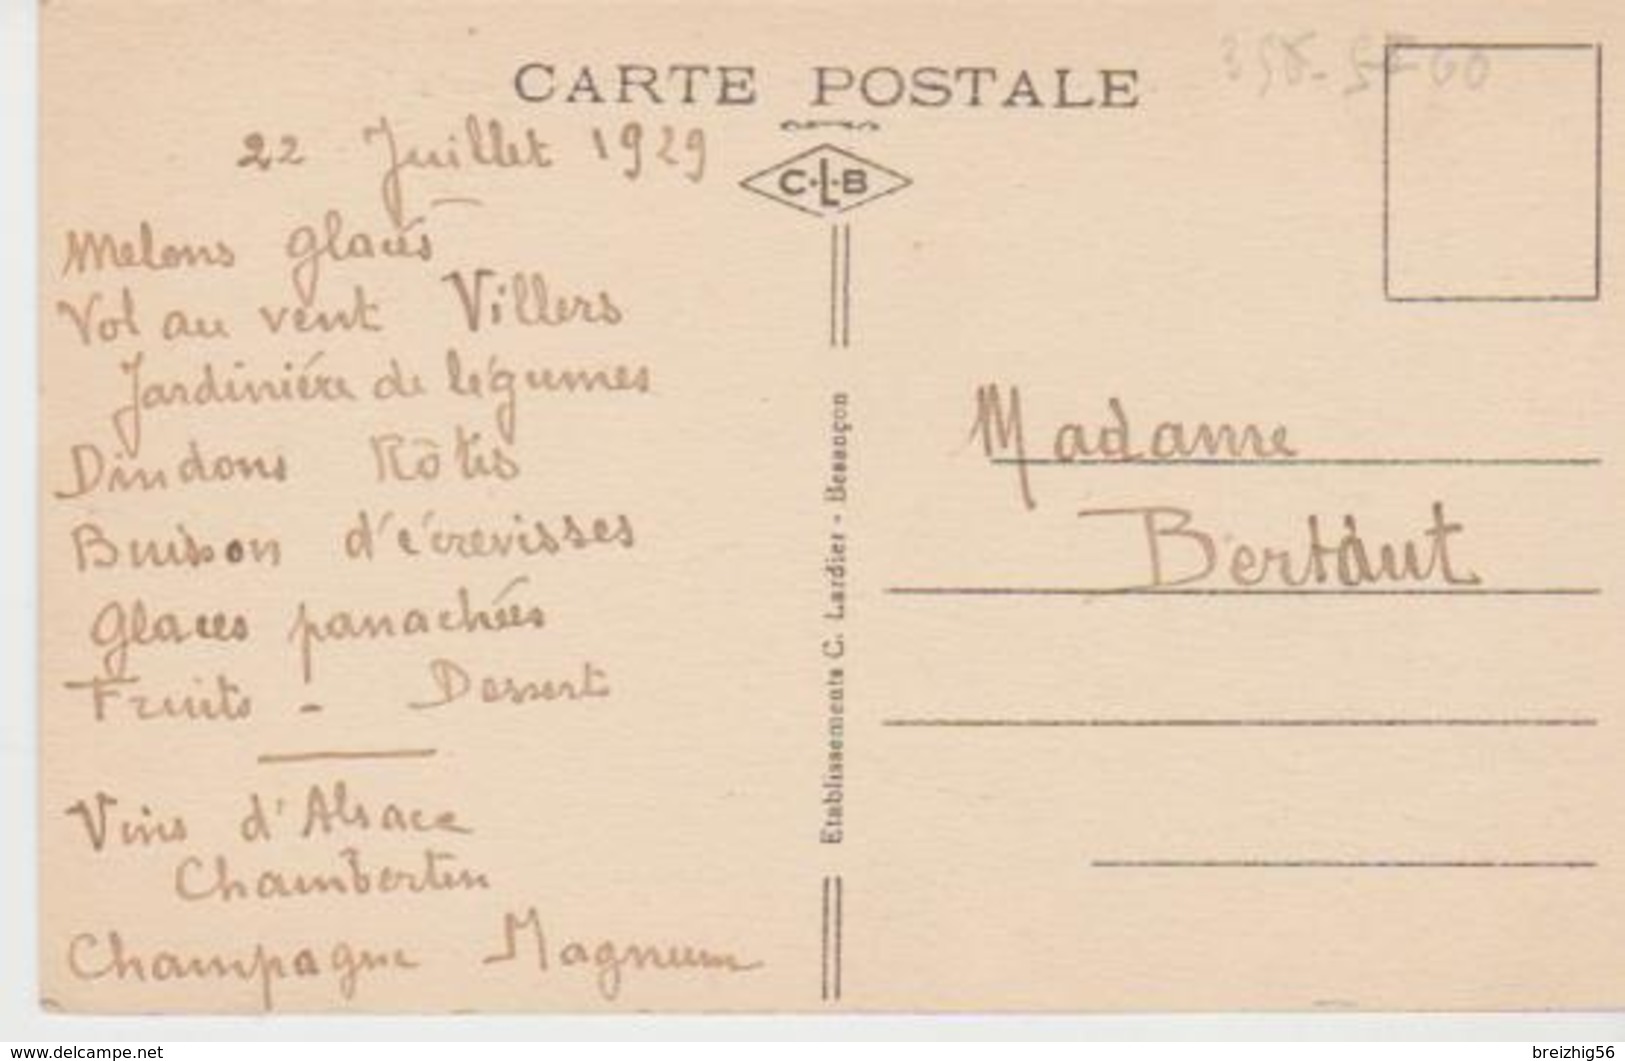 CARTE POSTALE
C·L·B
22 Juillet 1929
Melons glacés
Vol au vent Villers
Jardinière de légumes
Dindons Rôtis
Buisson d'écrevisses
Glaces panachées
Fruits - Dessert
Vins d'Alsace
Chambertin
Champagne Magnum
Etablissements C. Lardier - Besançon
Madame
Bertaut
www.delcampe.net
breizhig56